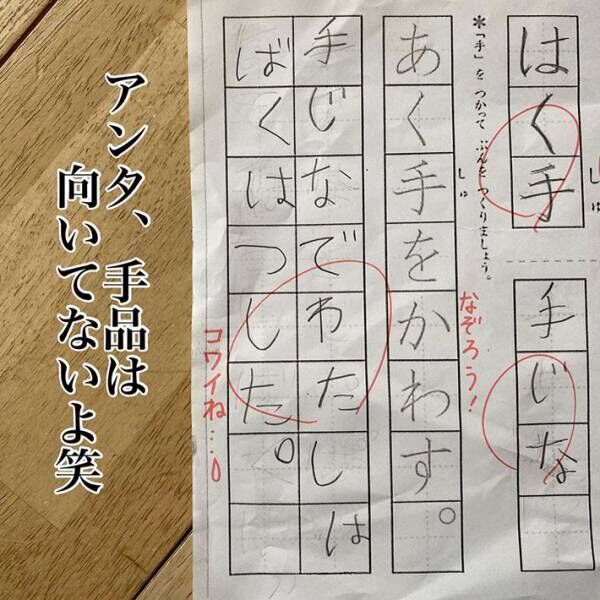 はく手
しゅ
手じな
＊「手」を つかって ぶんを つくりましょう。
あく手をかわす。
しゅ
なぞろう！
手じなでわたしは
ばくはつした。
コワイね…
アンタ、手品は
向いてないよ笑